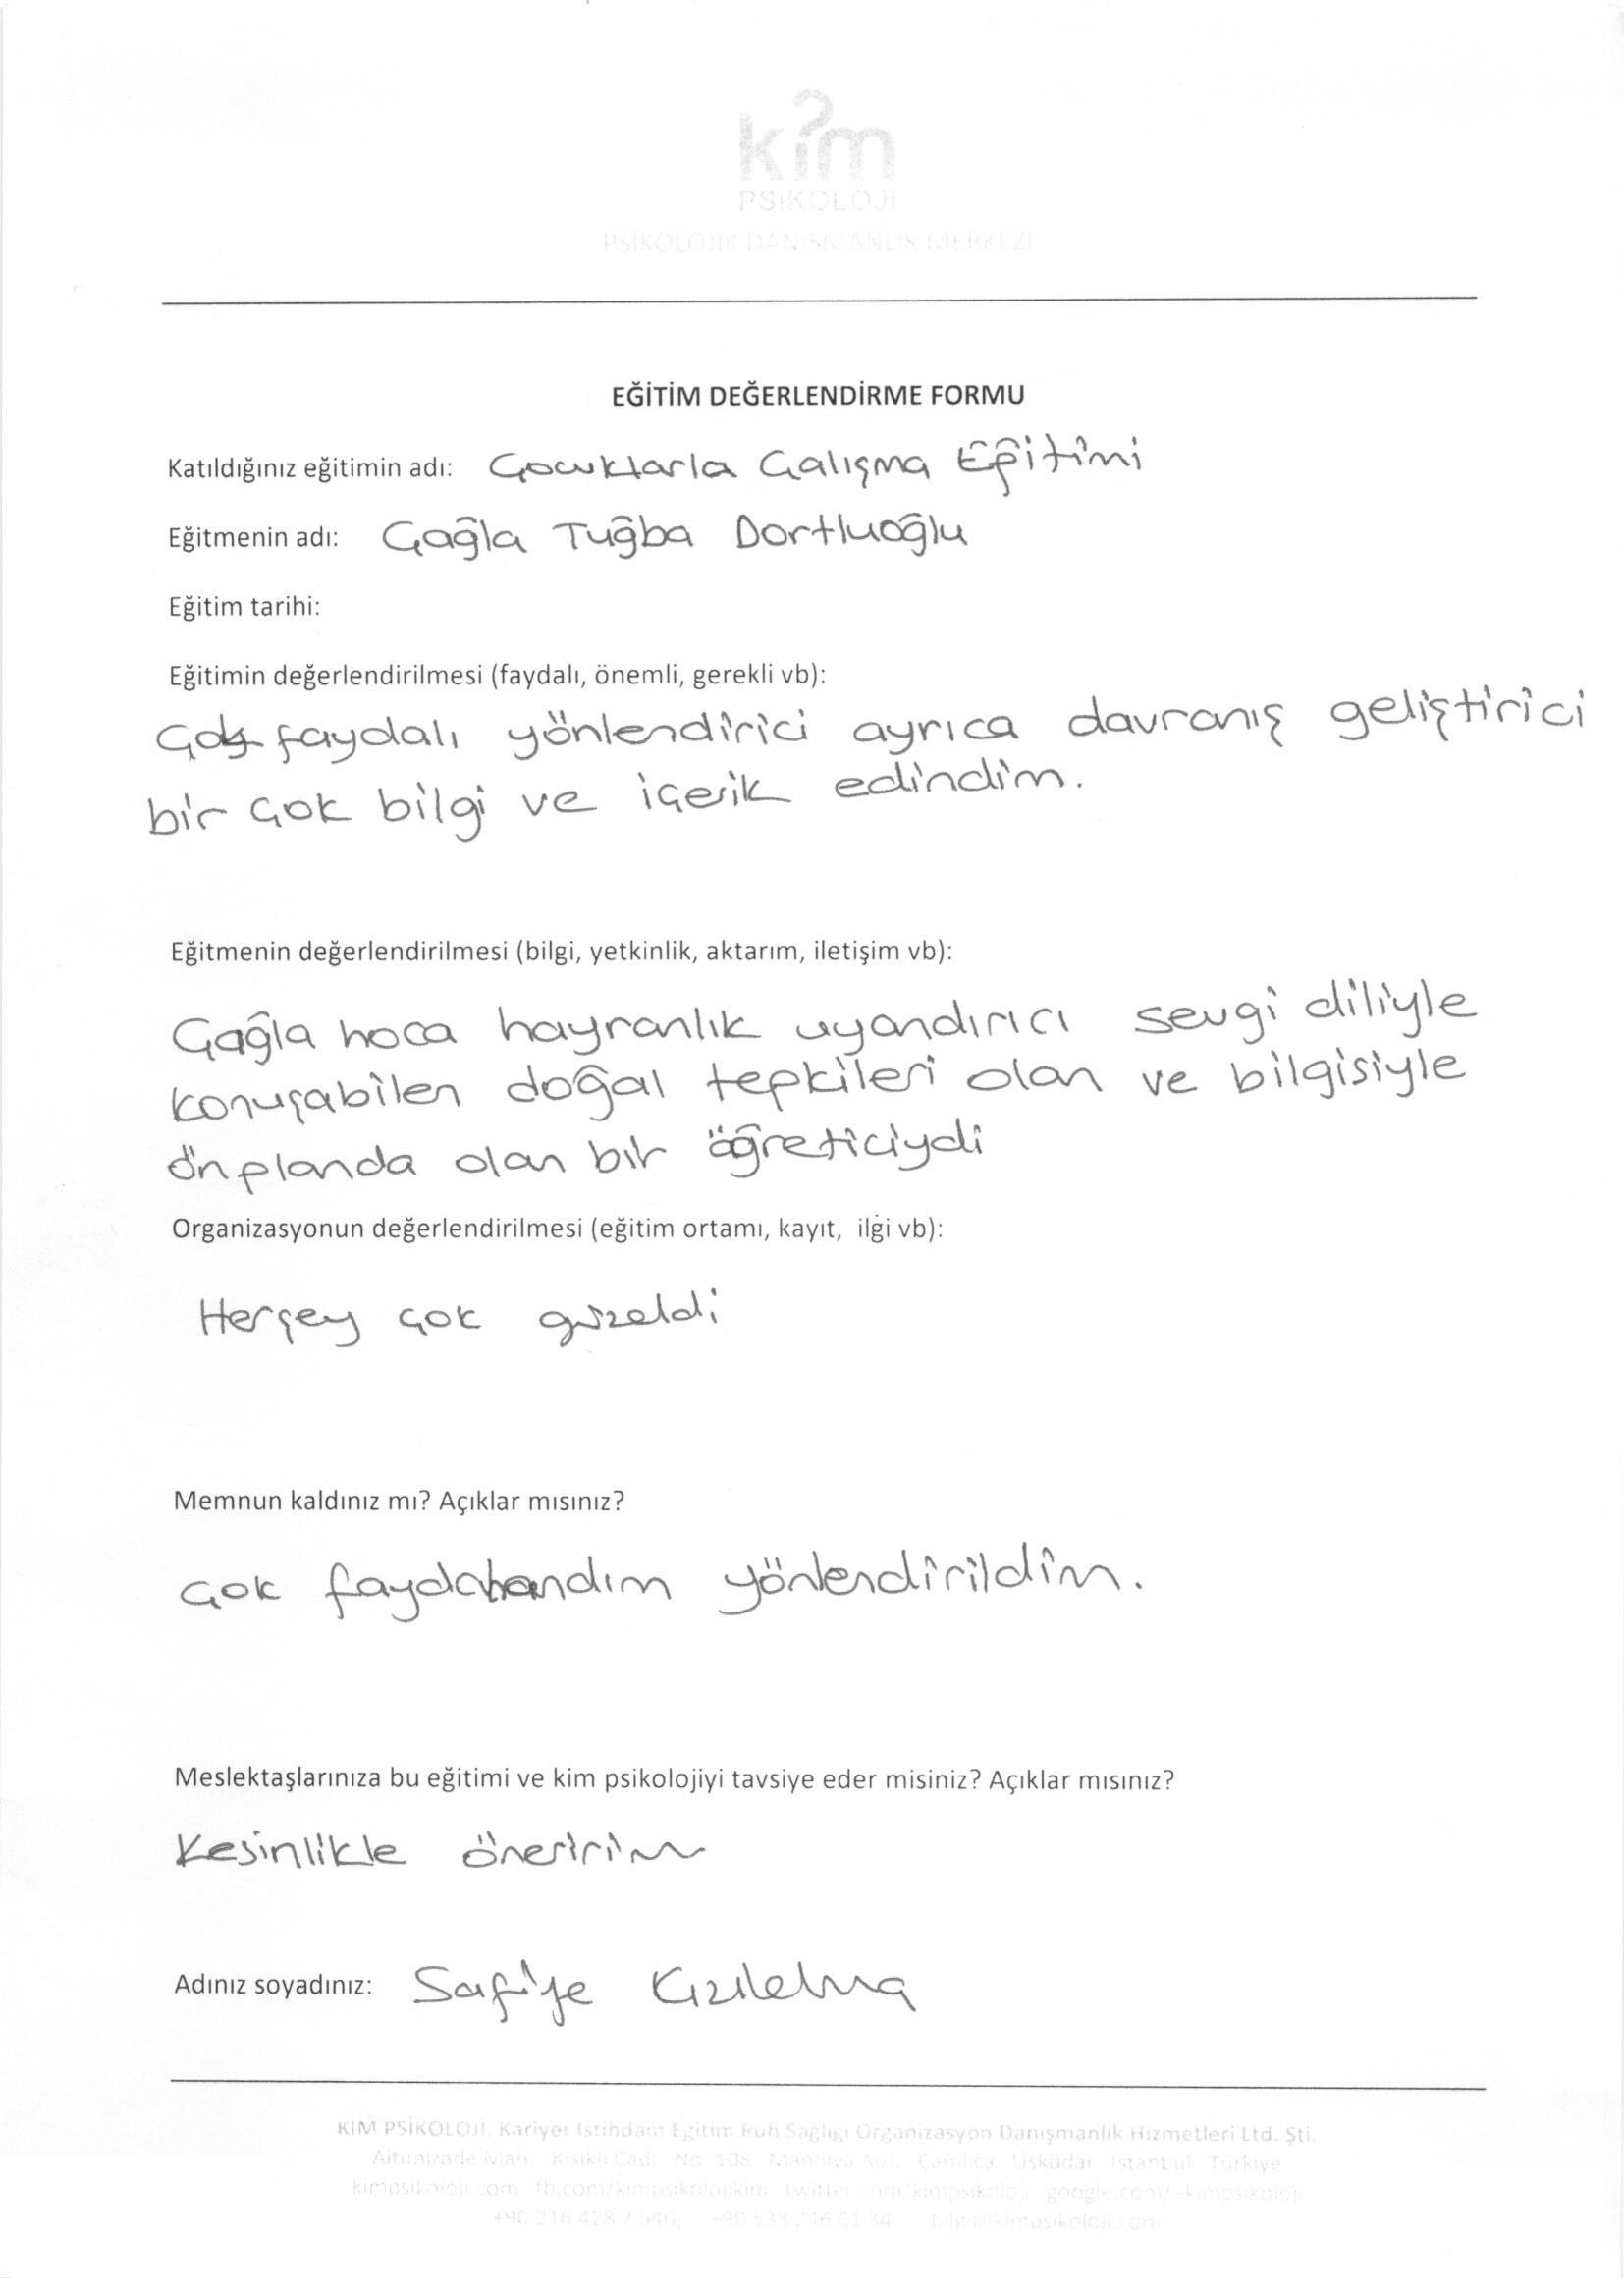 kim
PSİKOLOJİ
PSİKOLOJİK DANIŞMANLIK MERKEZİ
EĞİTİM DEĞERLENDİRME FORMU
Katıldığınız eğitimin adı: Çocuklarla Çalışma Eğitimi
Eğitmenin adı: Çağla Tuğba Dortluoğlu
Eğitim tarihi:
Eğitimin değerlendirilmesi (faydalı, önemli, gerekli vb):
Çok faydalı yönlendirici ayrıca davranış geliştirici
bir çok bilgi ve içerik edindim.
Eğitmenin değerlendirilmesi (bilgi, yetkinlik, aktarım, iletişim vb):
Çağla hoca hayranlık uyandırıcı sevgi diliyle
konuşabilen doğal tepkileri olan ve bilgisiyle
önplanda olan bir öğreticiydi
Organizasyonun değerlendirilmesi (eğitim ortamı, kayıt, ilgi vb):
Herşey çok güzeldi
Memnun kaldınız mı? Açıklar mısınız?
Çok faydalandım yönlendirildim.
Meslektaşlarınıza bu eğitimi ve kim psikolojiyi tavsiye eder misiniz? Açıklar mısınız?
Kesinlikle öneririm
Adınız soyadınız: Safiye Kızılelma
KİM PSİKOLOJİ Kariyer İstihdam Eğitim Ruh Sağlığı Organizasyon Danışmanlık Hizmetleri Ltd. Şti.
Altunizade Mah. Kısıklı Cad. No: 108 Manolya Apt. Çamlıca Üsküdar İstanbul Türkiye
kimpsikoloji.com fb.com/kimpsikolojikim twitter.com/kimpsikoloji google.com/+kimpsikoloji
bilgi@kimpsikoloji.com